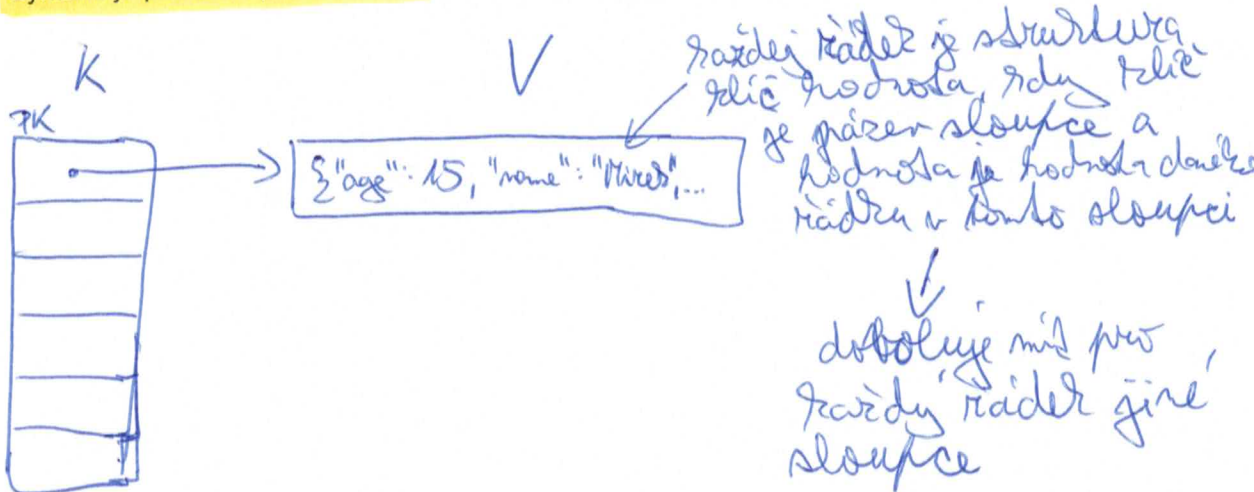 K
V
PK
{"age": 15, "name": "Mirek",...
každej řádek je struktura
klíč hodnota, kdy klíč
je název sloupce a
hodnota je hodnota daného
řádku v tomto sloupci
dovoluje mít pro
každý řádek jiné
sloupce